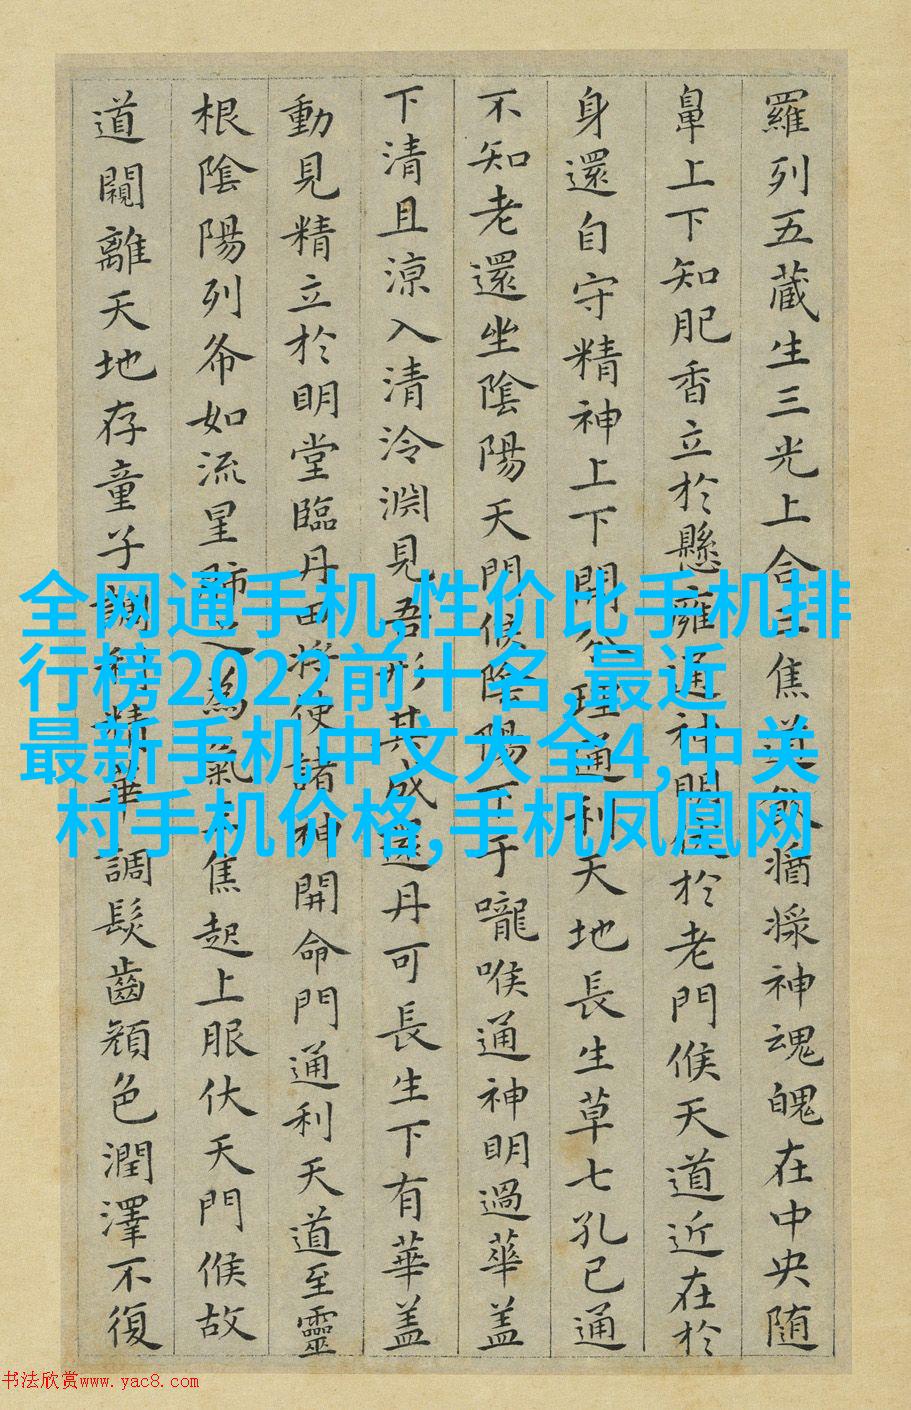 羅列五藏生三光上合三焦道飲漿神魂魄在中央随
鼻上下知肥香立於懸雍通神明伏於老門候天道近在於
身還自守精神上下開分理通利天地長生草七孔已通
不知老還坐陰陽天門候陰陽下于嚨喉通神明過華盖
下清且涼入清泠淵見吾形其成還丹可長生下有華盖
動見精立於明堂臨丹田将使諸神開命門通利天道至靈
根陰陽列布如流星肺之為氣三焦起上服伏天門候故
道闚離天地存童子調利精華調髮齒顔色潤澤不復
全网通手机,性价比手机排
行榜2022前十名,最近
最新手机中文大全4,中关
村手机价格,手机凤凰网
书法欣赏www.yac8.com